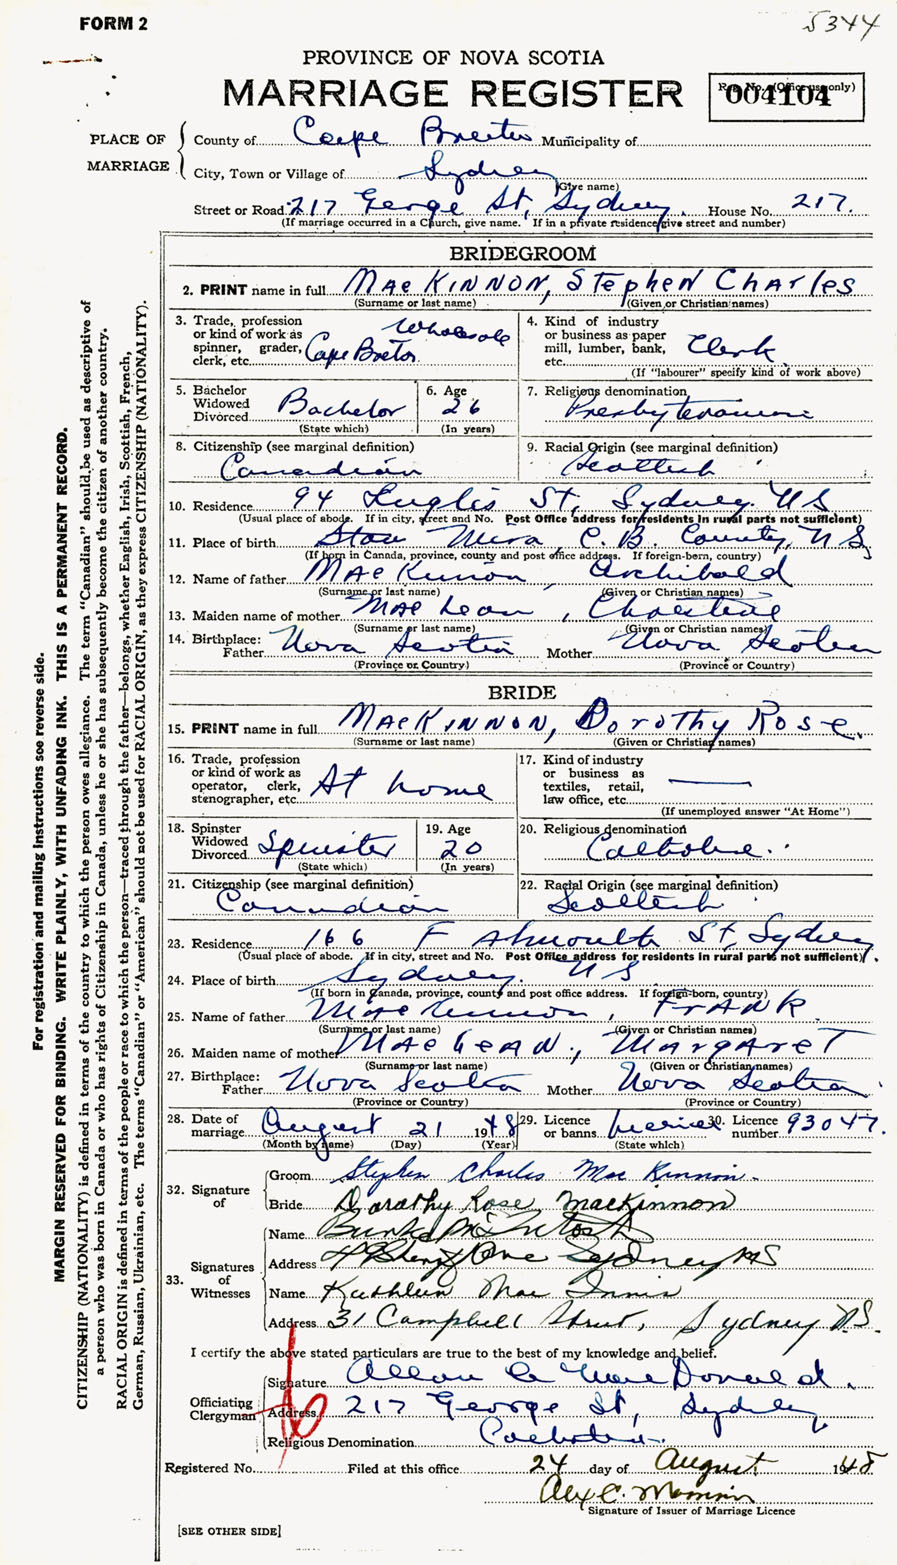 FORM 2
5344
PROVINCE OF NOVA SCOTIA
MARRIAGE REGISTER
Reg. No. (Office use only)
004104
PLACE OF MARRIAGE
County of Cape Breton Municipality of
City, Town or Village of Sydney
(Give name)
Street or Road 217 George St, Sydney. House No. 217.
(If marriage occurred in a Church, give name. If in a private residence give street and number)
BRIDEGROOM
2. PRINT name in full MacKINNON, Stephen Charles
(Surname or last name) (Given or Christian names)
3. Trade, profession or kind of work as spinner, grader, clerk, etc. Wholesale Cape Breton
4. Kind of industry or business as paper mill, lumber, bank, etc. Clerk
(If "labourer" specify kind of work above)
5. Bachelor Widowed Divorced Bachelor
(State which)
6. Age 26
(In years)
7. Religious denomination
8. Citizenship (see marginal definition) Canadian
9. Racial Origin (see marginal definition) Scottish
10. Residence 94 St, Sydney. NS
(Usual place of abode. If in city, street and No. Post Office address for residents in rural parts not sufficient)
11. Place of birth Mira, C. B. County, N S
(If born in Canada, province, county and post office address. If foreign-born, country)
12. Name of father MacKinnon, Archibald
(Surname or last name) (Given or Christian names)
13. Maiden name of mother MacLean, Christine
(Surname or last name) (Given or Christian names)
14. Birthplace: Father Nova Scotia Mother Nova Scotia
(Province or Country) (Province or Country)
BRIDE
15. PRINT name in full MacKINNON, Dorothy Rose.
(Surname or last name) (Given or Christian names)
16. Trade, profession or kind of work as operator, clerk, stenographer, etc. At home
17. Kind of industry or business as textiles, retail, law office, etc. —
(If unemployed answer "At Home")
18. Spinster Widowed Divorced Spinster
(State which)
19. Age 20
(In years)
20. Religious denomination Catholic.
21. Citizenship (see marginal definition) Canadian
22. Racial Origin (see marginal definition) Scottish
23. Residence 166 St, Sydney
(Usual place of abode. If in city, street and No. Post Office address for residents in rural parts not sufficient)
24. Place of birth Sydney. N S
(If born in Canada, province, county and post office address. If foreign-born, country)
25. Name of father MacKinnon, FRANK
(Surname or last name) (Given or Christian names)
26. Maiden name of mother MacLEAN, MARGARET
(Surname or last name) (Given or Christian names)
27. Birthplace: Father Nova Scotia Mother Nova Scotia
(Province or Country) (Province or Country)
28. Date of marriage August 21 1948
(Month by name) (Day) (Year)
29. Licence or banns
(State which)
30. Licence number 93047.
32. Signature of
Groom Stephen Charles MacKinnon.
Bride Dorothy Rose MacKinnon
33. Signatures of Witnesses
Name
Address Sydney NS
Name Kathleen MacInnis
Address 31 Campbell Street, Sydney N.S.
I certify the above stated particulars are true to the best of my knowledge and belief.
Officiating Clergyman
Signature Allan MacDonald.
Address 217 George St, Sydney
Religious Denomination Catholic.
Registered No. Filed at this office 24 day of August 1948
Signature of Issuer of Marriage Licence
[SEE OTHER SIDE]
For registration and mailing instructions see reverse side.
MARGIN RESERVED FOR BINDING. WRITE PLAINLY, WITH UNFADING INK. THIS IS A PERMANENT RECORD.
CITIZENSHIP (NATIONALITY) is defined in terms of the country to which the person owes allegiance. The term "Canadian" should be used as descriptive of
a person who was born in Canada or who has rights of Citizenship in Canada, unless he or she has subsequently become the citizen of another country.
RACIAL ORIGIN is defined in terms of the people or race to which the person—traced through the father—belongs, whether English, Irish, Scottish, French,
German, Russian, Ukrainian, etc. The terms "Canadian" or "American" should not be used for RACIAL ORIGIN, as they express CITIZENSHIP (NATIONALITY).